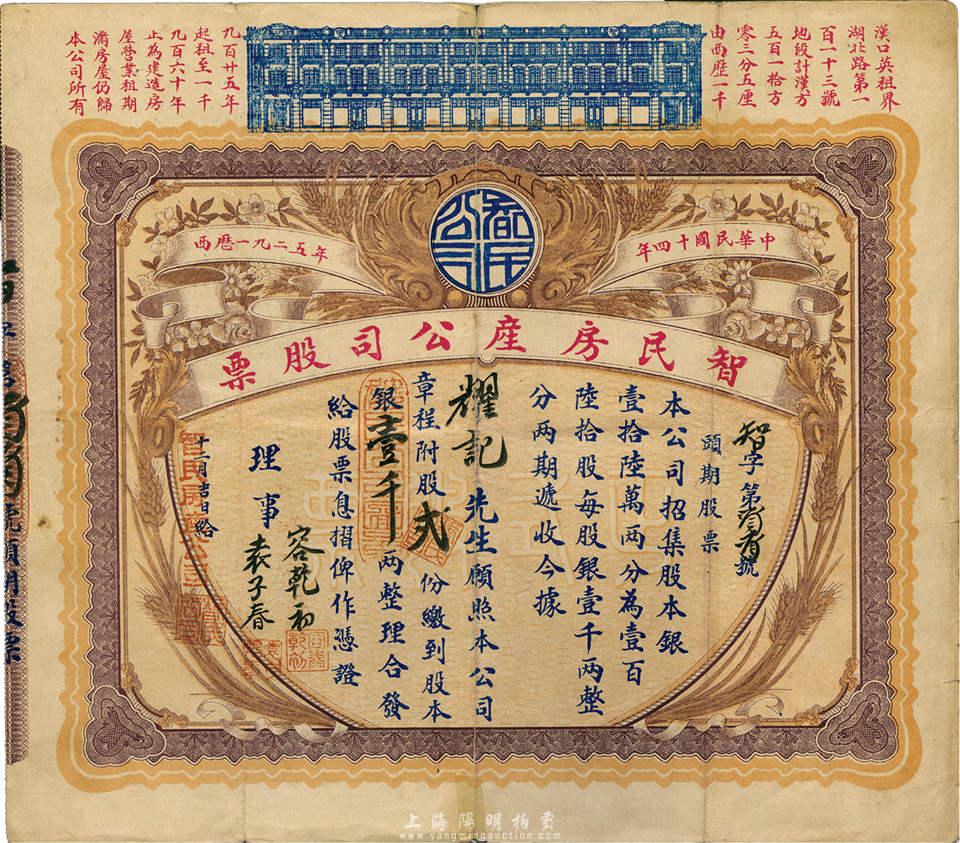 漢口英租界
湖北路第一
百一十三號
地皮計漢方
五百一拾方
零三分五厘
由西歷一千
九百廿五年
起租至一千
九百六十年
止為建造房
屋營業租期
滿房屋仍歸
本公司所有
智民公司
中華民國十四年
西歷一九二五年
智民房產公司股票
智字第
號
頭期股票
本公司招集股本銀
壹拾陸萬兩分為壹百
陸拾股每股銀壹千兩整
分兩期遞收今據
耀記先生願照本公司
章程附股弍份繳到股本
銀壹千兩整理合發
給股票息摺俾作憑證
理事
容乾初
袁子春
十二月吉日給
智民房產公司
號頭期股票
上海陽明拍賣
www.yangmingauction.com